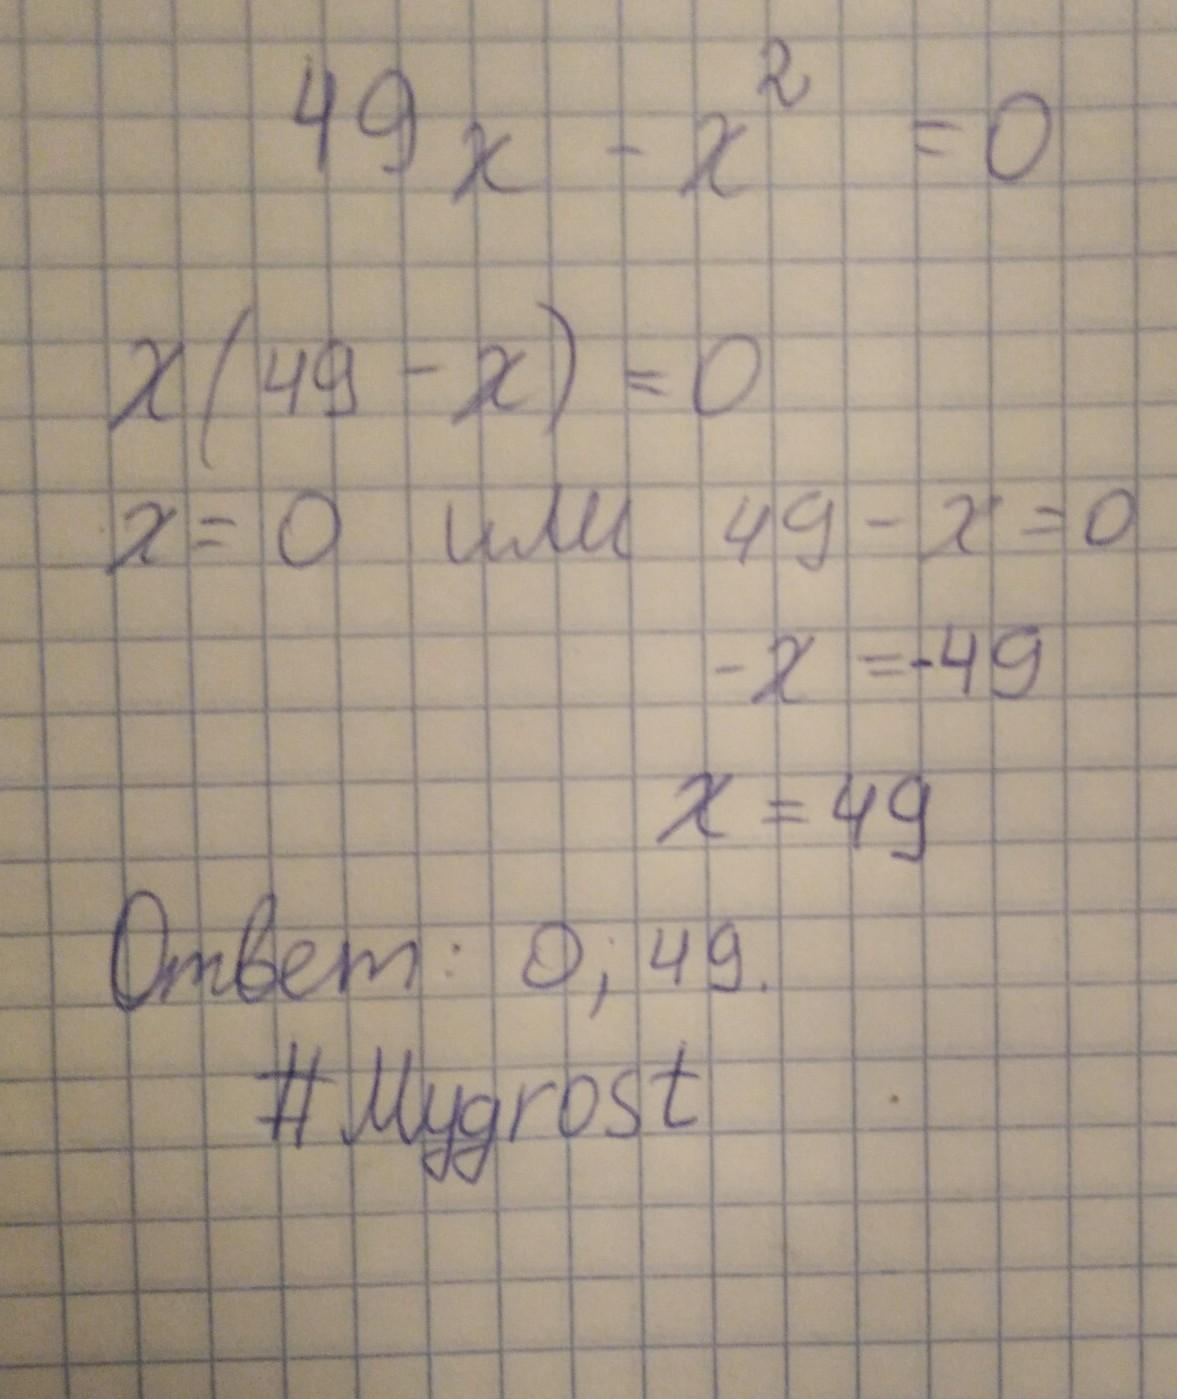 49x - x² = 0
x(49 - x) = 0
x = 0 или 49 - x = 0
-x = -49
x = 49
Ответ: 0; 49.
#Mygrost